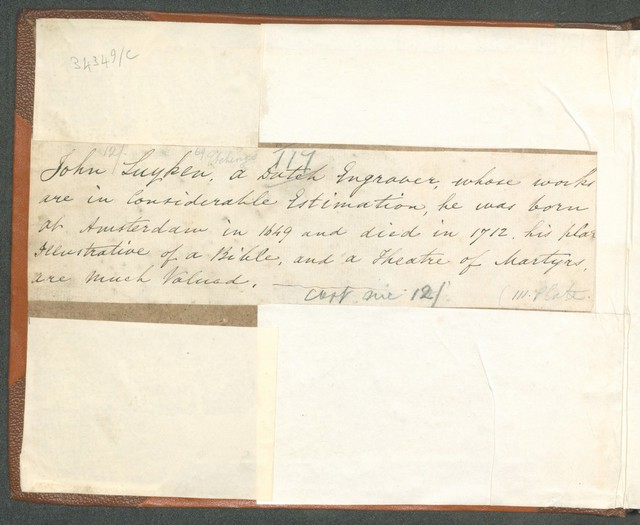 34349/C
12/
117
John Luyken, a Dutch Engraver, whose works
are in Considerable Estimation, he was born
at Amsterdam in 1649 and died in 1712. his pla
Illustrative of a Bible, and a Theatre of Martyrs,
are much Valued. —
Cost me 12/
(111. Plate